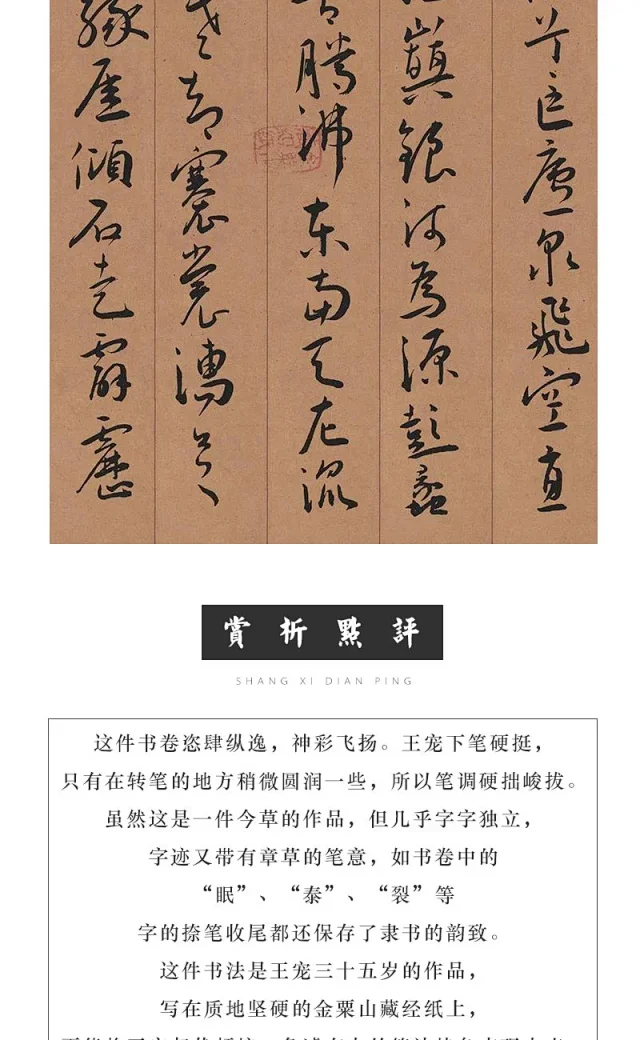 匡廬泉飛空直
巔銀河為源彭蠡
騰沸東南天左混
却褰裳
緣厓傾石走霹靂
賞析點評
SHANG XI DIAN PING
这件书卷恣肆纵逸，神彩飞扬。王宠下笔硬挺，
只有在转笔的地方稍微圆润一些，所以笔调硬拙峻拔。
虽然这是一件今草的作品，但几乎字字独立，
字迹又带有章草的笔意，如书卷中的
“眠”、“泰”、“裂”等
字的捺笔收尾都还保存了隶书的韵致。
这件书法是王宠三十五岁的作品，
写在质地坚硬的金粟山藏经纸上，